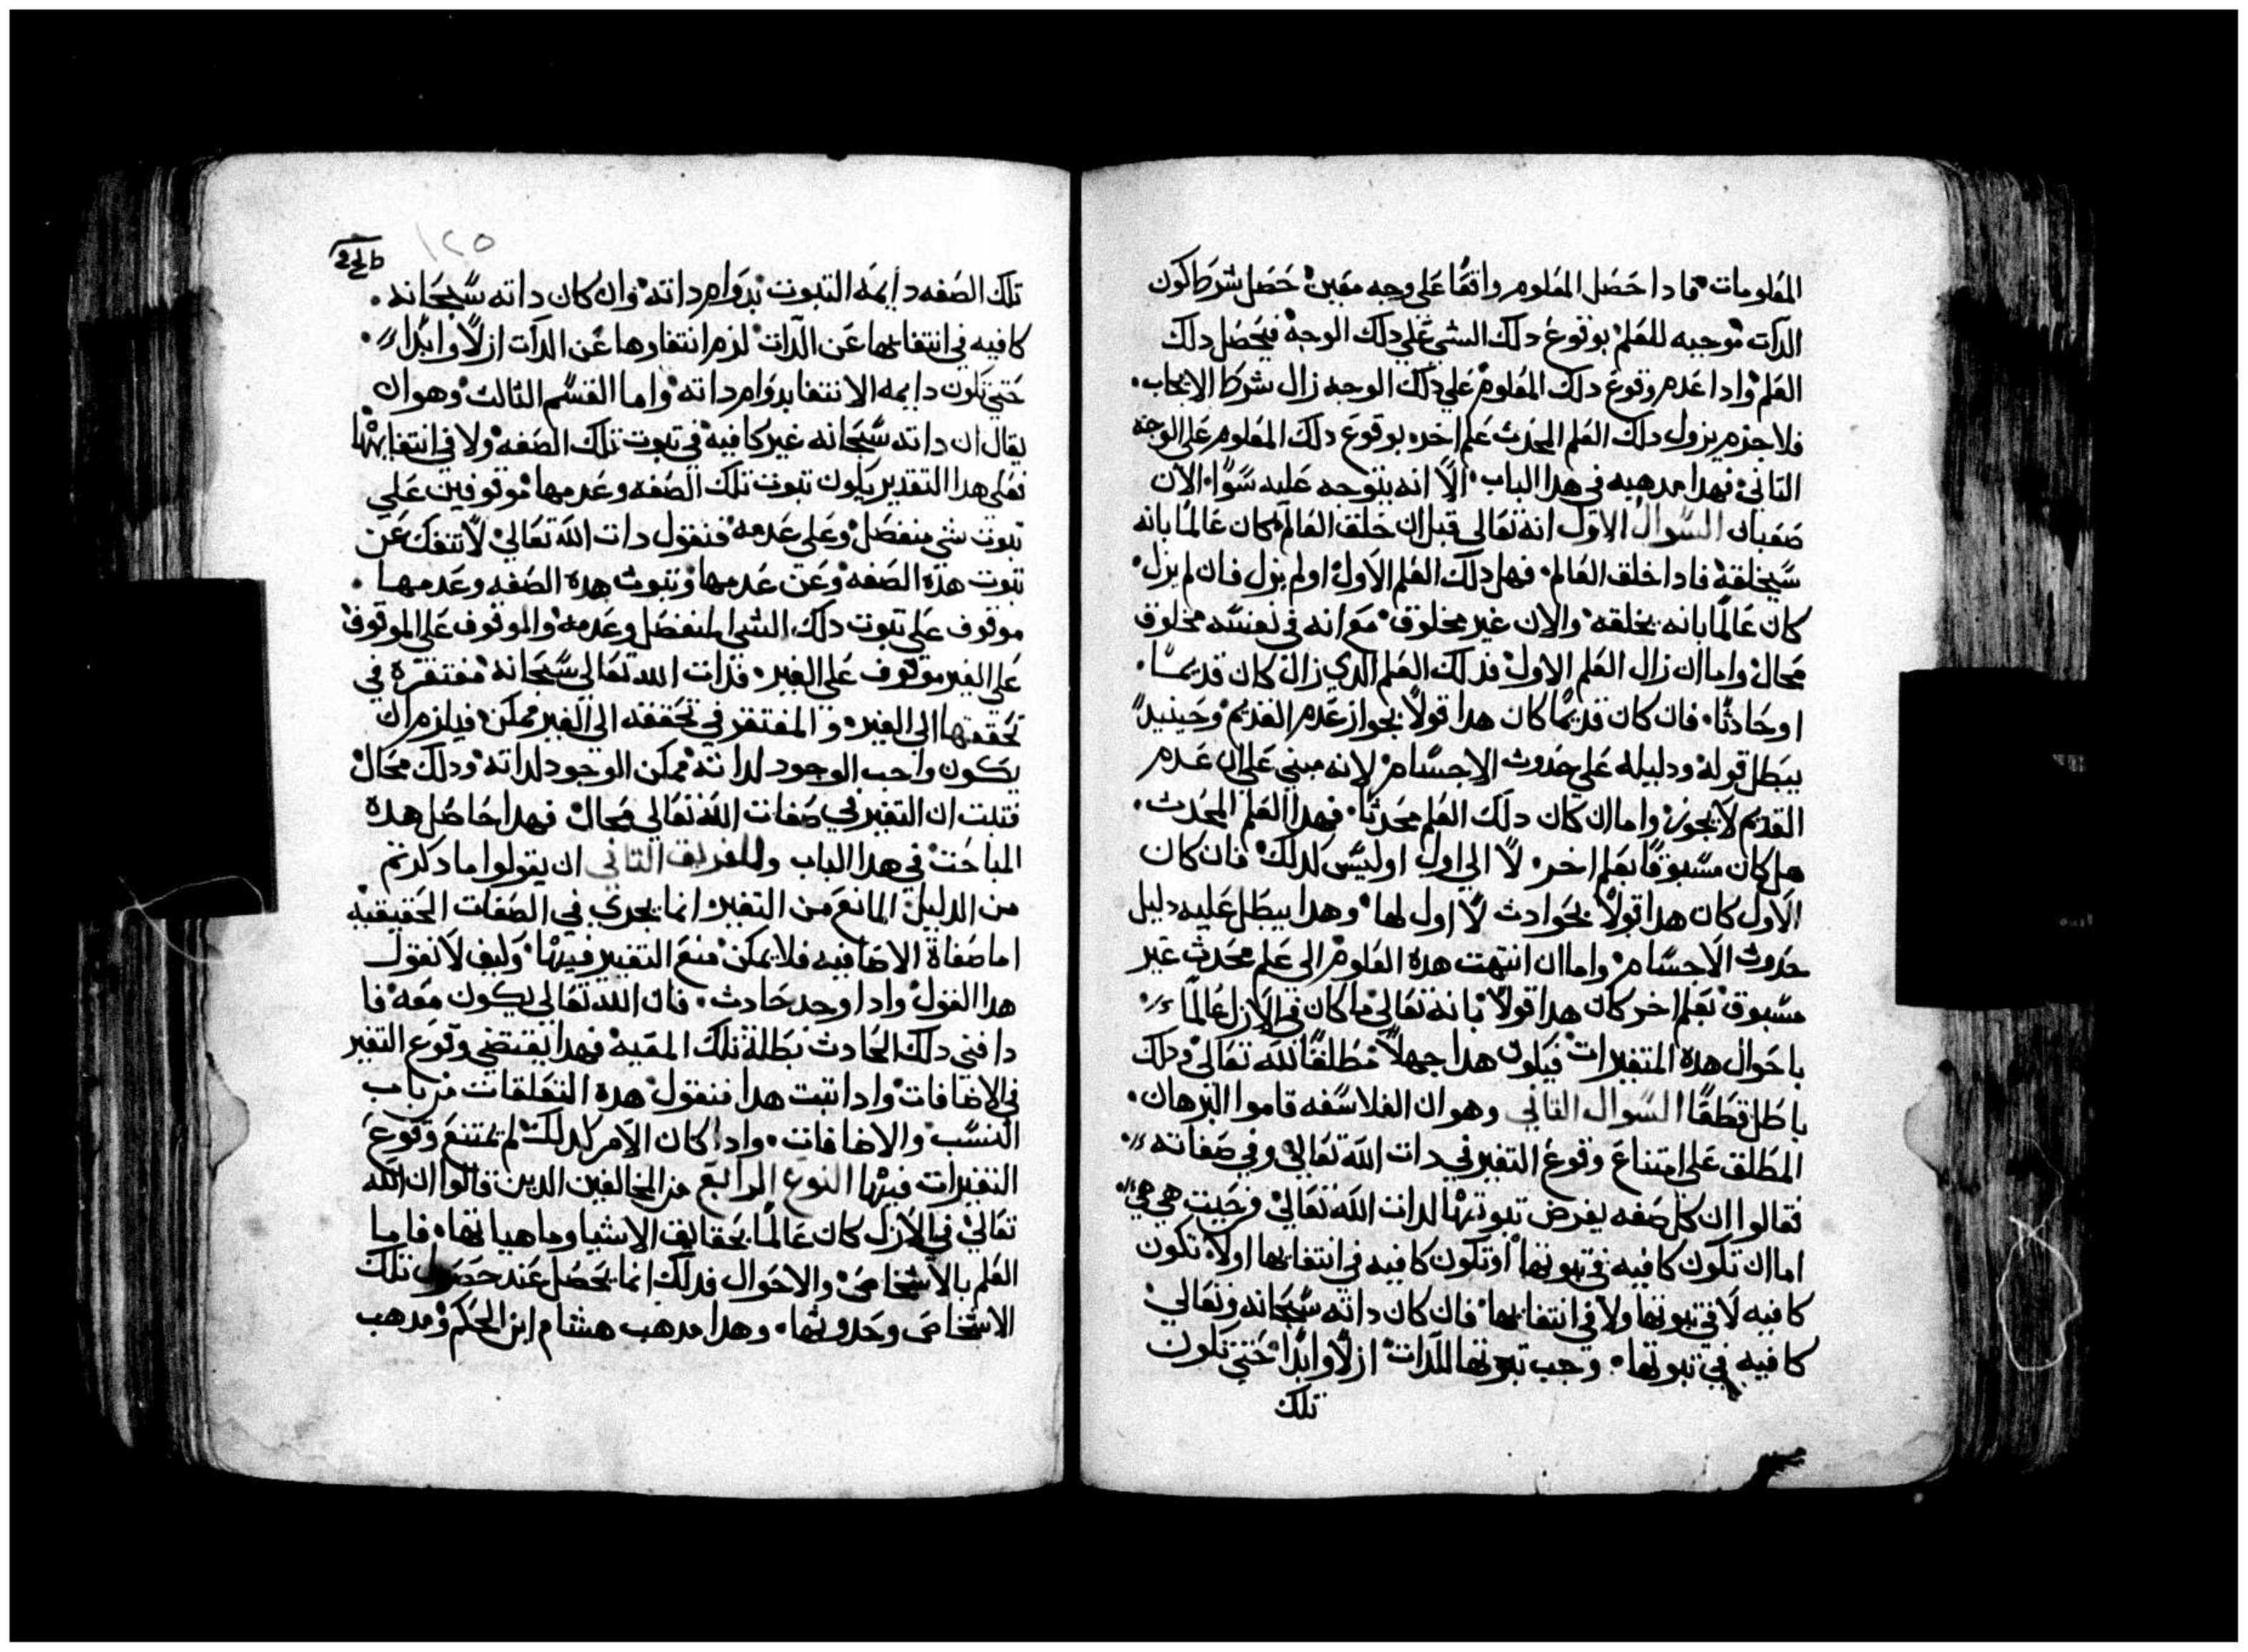 المعلومات فادا حَصَل المعَلوم واقعًا عَلي وجه معَين حَصَل شرط كون
الدات موجبه للعَلم بوقوع دلك الشي عَلي دلك الوجه فيحَصَل دلك
العَلم وادا عَدم وقوع دلك المعَلوم عَلي دلك الوجه زال شرط الايجاب
فلا جزم يزول دلك العَلم المحَدث عَلم اخر بوقوع دلك المعَلوم عَلي الوجه
التاني فهدا مدهبه في هدا الباب الّا انه يتوجه عَليه سَوالان
صَعَبان السَوال الاول انه تعَالي قبل ان خلق العَالم كان عَالمًا بانه
سَيخلقه فادا خلق العَالم فهل دلك العَلم الاول او لم يزل فان لم يزل
كان عَالمًا بانه يخلقه والان غير مخلوق مَع انه في نفسَه مخلوق
مَحال واما ان زال العَلم الاول فدلك العَلم الدي زال كان قديمًا
او حَادثًا فان كان قديمًا كان هدا قولًا بجواز عَدم القديم وحَينيدٍ
يبطل قوله ودليله عَلي حَدوث الاجسَام لانه مبني عَلي ان عَدم
القديم لا يجوز واما ان كان دلك العَلم محَدثًا فهدا العَلم المحَدث
هل كان مسَبوقًا بعَلم اخر لا الي اول او ليسَ كدلك فان كان
الاول كان هدا قولًا بحَوادث لا اول لها وهدا يبطَل عَليه دليل
حَدوث الاجسَام واما ان انتهت هده العَلوم الي عَلم محَدث غير
مسَبوق بعَلم اخر كان هدا قولًا بانه تعَالي ما كان في الازل عَالمًا
باحَوال هده المتغيرات فيكون هدا جهلًا مطلقًا لله تعَالي ودلك
باطَل قطَعًا السَوال التاني وهو ان الفلاسَفه قاموا البرهان
المطَلق عَلي امتناع وقوع التغير في دات الله تعَالي وفي صَفاته
فقالوا ان كل صَفه يفرض تبوتها لدات الله تعَالي فرحَيت هي هي
اما ان تكون كافيه في تبوتها او تكون كافيه في انتفايها او لا تكون
كافيه لا في تبوتها ولا في انتفايها فان كان داته سَبحَانه وتعَالي
كافيه في تبوتها وجب تبوتها للدات ازلًا وابدًا حَتي تكون
تلك
١٢٥
تلك الصَفه دايمَه التبوت بدوام داته وان كان داته سَبحَانه
كافيه في انتفايها عَن الدات لزم انتفاوها عَن الدات ازلًا وابدًا
حَتي تكون دايمه الانتفا بدوام داته واما القسَم التالت وهو ان
يقال ان داته سَبحَانه غير كافيه في تبوت تلك الصَفه ولا في انتفايها
فعَلي هدا التقدير يكون تبوت تلك الصَفه وعَدمها موقوفين عَلي
تبوت شي منفصَل وعَلي عَدمه فنقول دات الله تعَالي لا تنفك عَن
تبوت هده الصَفه وعَن عَدمها وتبوت هده الصَفه وعَدمها
موقوف عَلي تبوت دلك الشي المنفصَل وعَدمه والموقوف عَلي الموقوف
عَلي الغير موقوف عَلي الغير فدات الله تعَالي سَبحَانه مفتقره في
تحَققها الي الغير والمفتقر في تحَققه الي الغير ممكن فيلزم ان
يكون واجب الوجود لداته ممكن الوجود لداته ودلك محَال
فتبت ان التغير في صَفات الله تعَالي محَال فهدا حَاصَل هده
المباحَت في هدا الباب وللفريق التاني ان يقولوا ما دكرتم
من الدليل المانع من التغير انما يجري في الصَفات الحَقيقيه
اما صَفاة الاضافيه فلا يمكن منع التغيير فيها وكيف لا نقول
هدا القول وادا وجد حَادث فان الله تعَالي يكون معَه فا
دا فني دلك الحَادث بطَلة تلك المعَيه فهدا يقتضي وقوع التغير
في الاضافات وادا تبت هدا فنقول هده التعَلقات من باب
النسَب والاضافات وادا كان الامر كدلك لم يمتنع وقوع
التغيرات فيها النوع الرابع من المخالفين الدين قالوا ان الله
تعَالي في الازل كان عَالمًا بحَقايق الاشيا وماهياتها فاما
العَلم بالاشخاص والاحَوال فدلك انما يحَصَل عَند حَصَول تلك
الاشخاص وحَدوتها وهدا مدهب هشام ابن الحَكم ومدهب